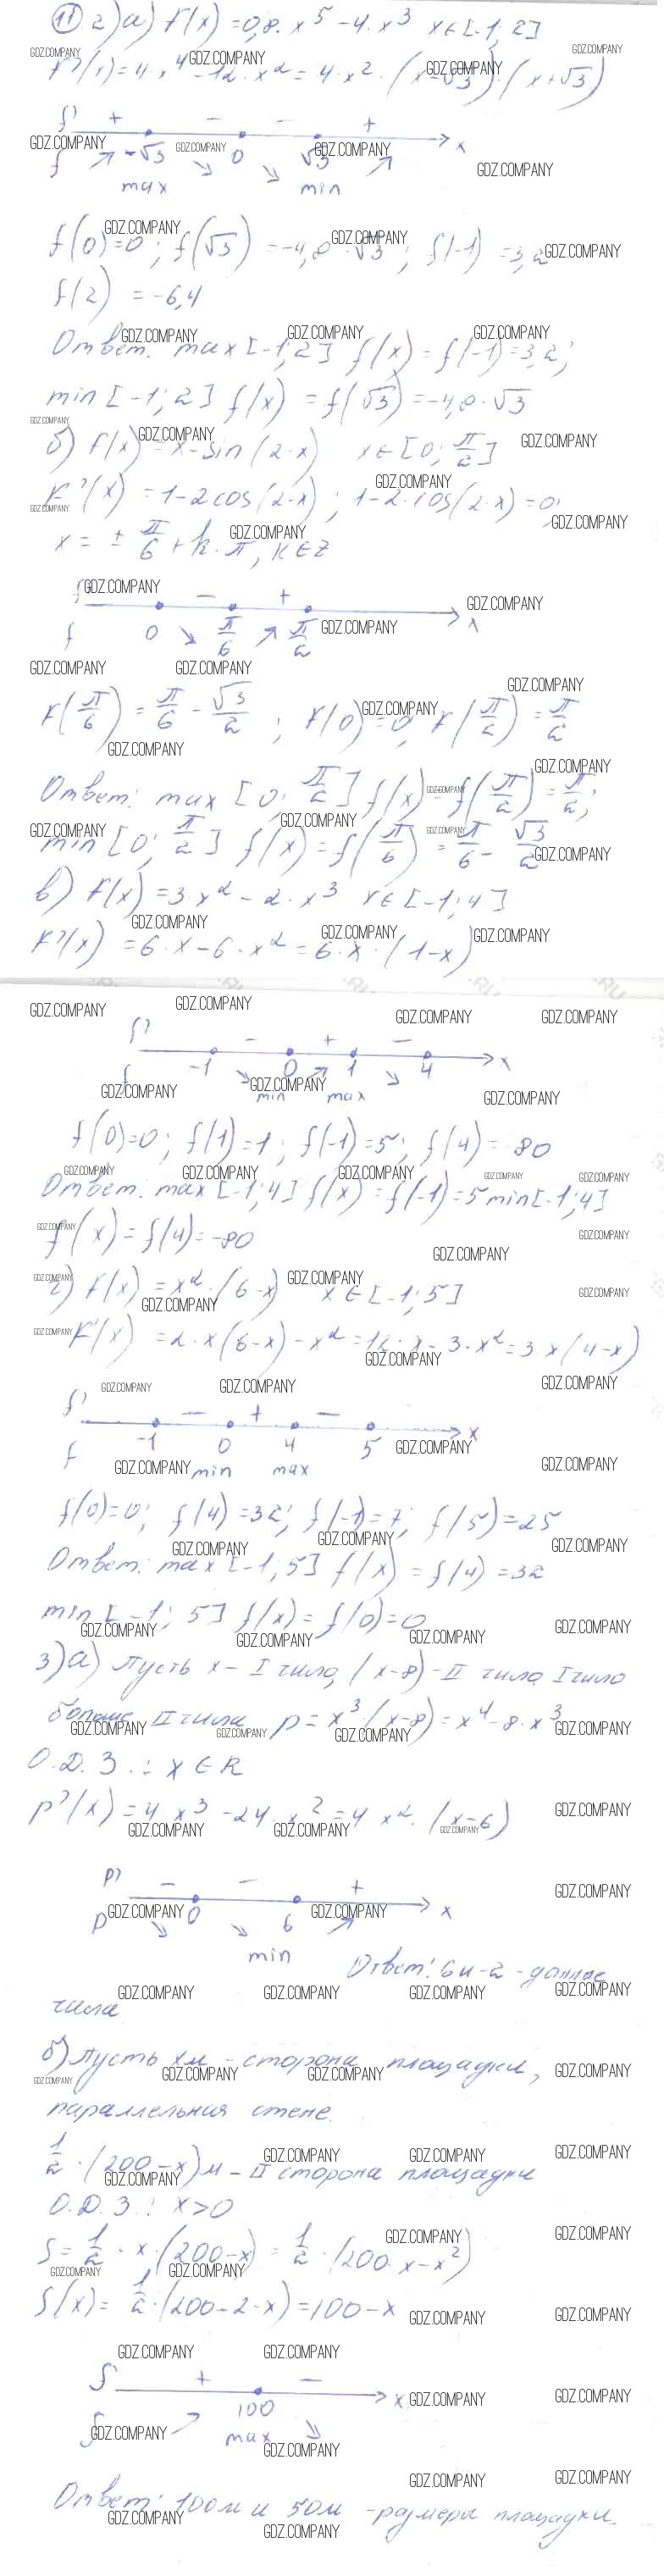 11 2) а) f(x) = 0,8·x⁵ - 4·x³ x∈[-1; 2]
f'(x) = 4·x⁴ - 12·x² = 4·x²·(x-√3)·(x+√3)
f' + - - + x
f -√3 0 √3
max min
f(0)=0; f(√3) = -4,8·√3; f(-1) = 3,2
f(2) = -6,4
Ответ: max [-1; 2] f(x) = f(-1) = 3,2;
min [-1; 2] f(x) = f(√3) = -4,8·√3
б) f(x) = x - sin(2·x) x∈[0; π/2]
f'(x) = 1-2cos(2·x); 1-2·cos(2·x) = 0;
x = ± π/6 + k·π, k∈Z
f' - + x
f 0 π/6 π/2
f(π/6) = π/6 - √3/2; f(0) = 0, f(π/2) = π/2
Ответ: max [0; π/2] f(x) = f(π/2) = π/2;
min [0; π/2] f(x) = f(π/6) = π/6 - √3/2
в) f(x) = 3·x² - 2·x³ x∈[-1; 4]
f'(x) = 6·x - 6·x² = 6·x·(1-x)
f' - + - x
f -1 0 1 4
min max
f(0)=0; f(1)=1; f(-1)=5; f(4) = -80
Ответ: max [-1; 4] f(x) = f(-1) = 5 min [-1; 4]
f(x) = f(4) = -80
г) f(x) = x²·(6-x) x∈[-1; 5]
f'(x) = 2·x(6-x) - x² = 12·x - 3·x² = 3x(4-x)
f' - + - x
f -1 0 4 5
min max
f(0)=0; f(4)=32; f(-1)=7; f(5)=25
Ответ: max [-1; 5] f(x) = f(4) = 32
min [-1; 5] f(x) = f(0) = 0
3) а) Пусть x - I число, (x-8) - II число, I число
больше II числа p = x³·(x-8) = x⁴ - 8·x³
О.Д.З.: x∈R
p'(x) = 4x³ - 24·x² = 4x²·(x-6)
p' - - + x
p 0 6
min
Ответ: 6 и -2 - данные
числа
б) Пусть x м - сторона площадки,
параллельная стене.
1/2·(200-x) м - II сторона площадки
О.Д.З: x>0
S = 1/2·x·(200-x) = 1/2·(200·x-x²)
S'(x) = 1/2·(200-2·x) = 100-x
S' + - x
S 100
max
Ответ: 100м и 50м - размеры площадки.
GDZ.COMPANY